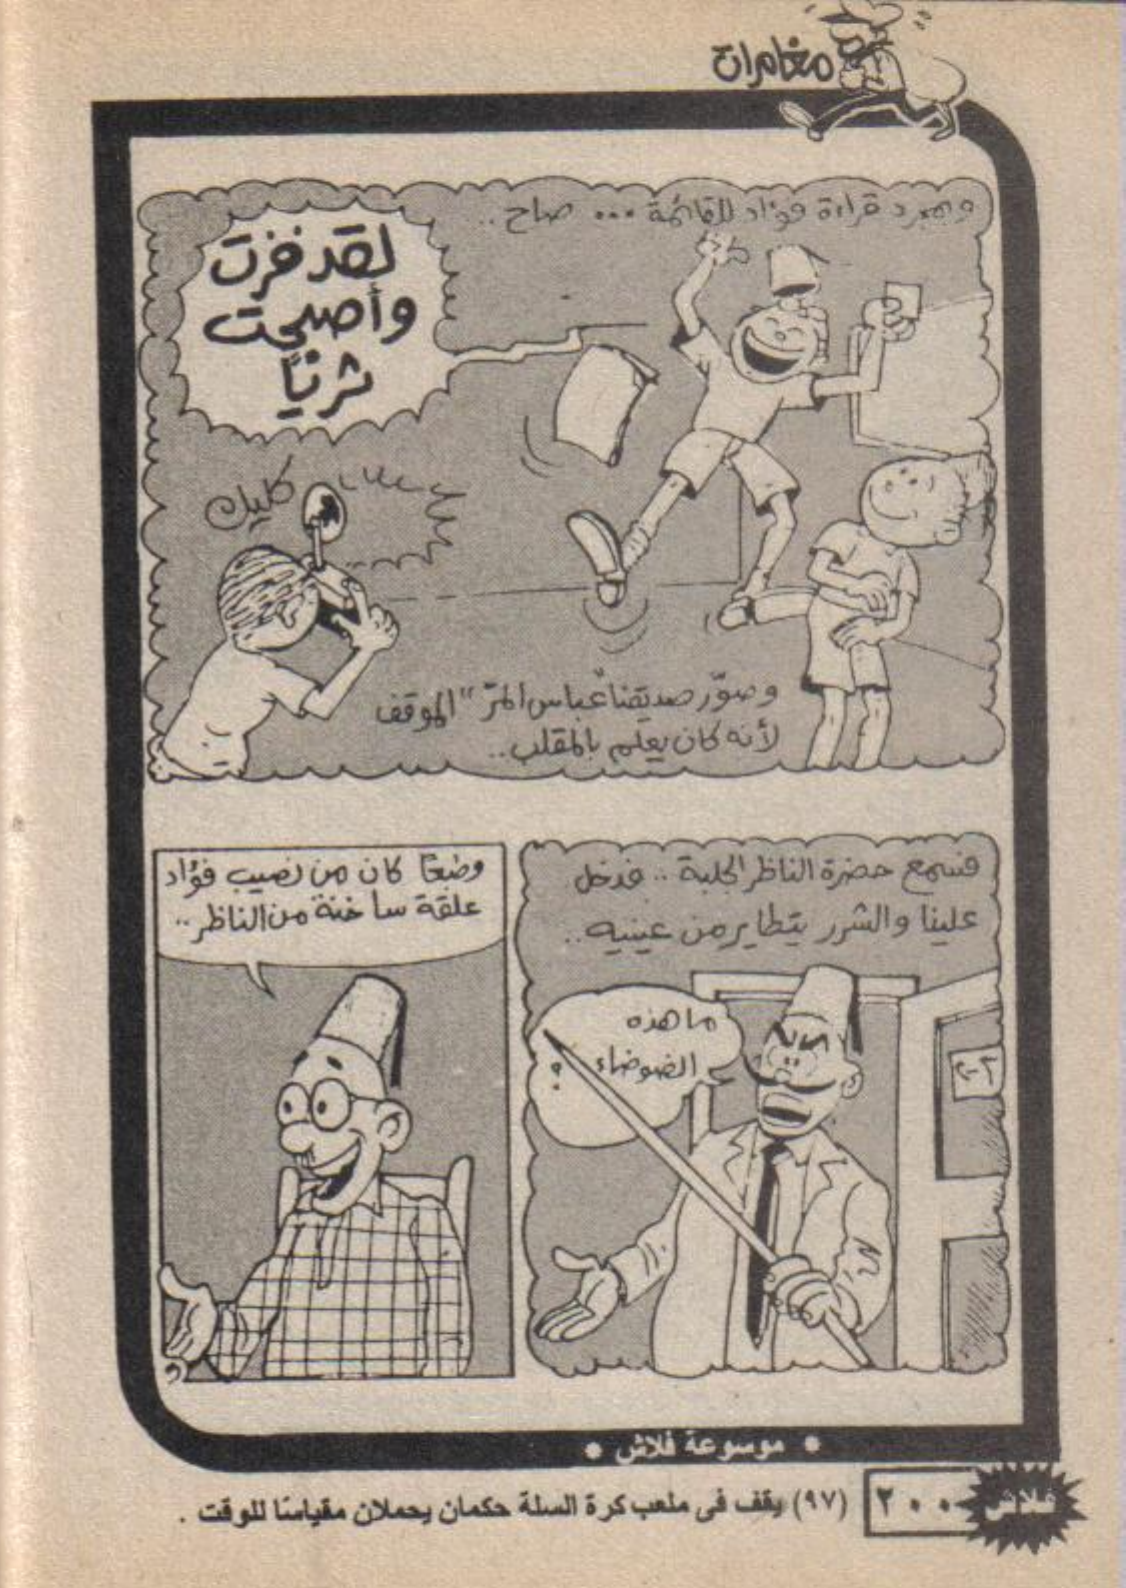 مغامرات
وبمجرد قراءة فؤاد للقائمة ... صاح ..
لقد فزت
وأصبحت
ثريًا
كليك
وصوّر صديقنا عباس المرّ " الموقف
لأنه كان يعلم بالمقلب ..
فسمع حضرة الناظر الجلبة .. فدخل
علينا والشرر يتطاير من عينيه ..
ما هذه
الضوضاء ؟
٢-٢
وطبعًا كان من نصيب فؤاد
علقة ساخنة من الناظر ..
* موسوعة فلاش *
فلاش ٢٠٠ (٩٧) يقف فى ملعب كرة السلة حكمان يحملان مقياسًا للوقت .